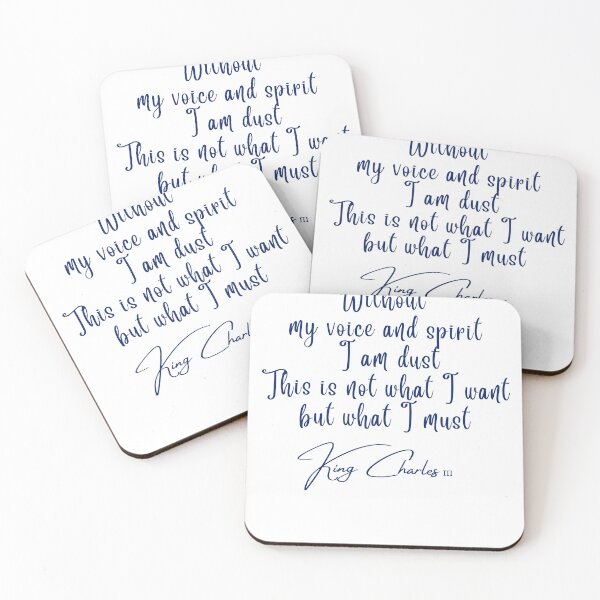 Without
my voice and spirit
I am dust
This is not what I want
but what I must
III
Without
my voice and spirit
I am dust
This is not what I want
but what I must
King Charles
Without
my voice and spirit
I am dust
This is not what I want
but what I must
King Charles
Without
my voice and spirit
I am dust
This is not what I want
but what I must
King Charles III